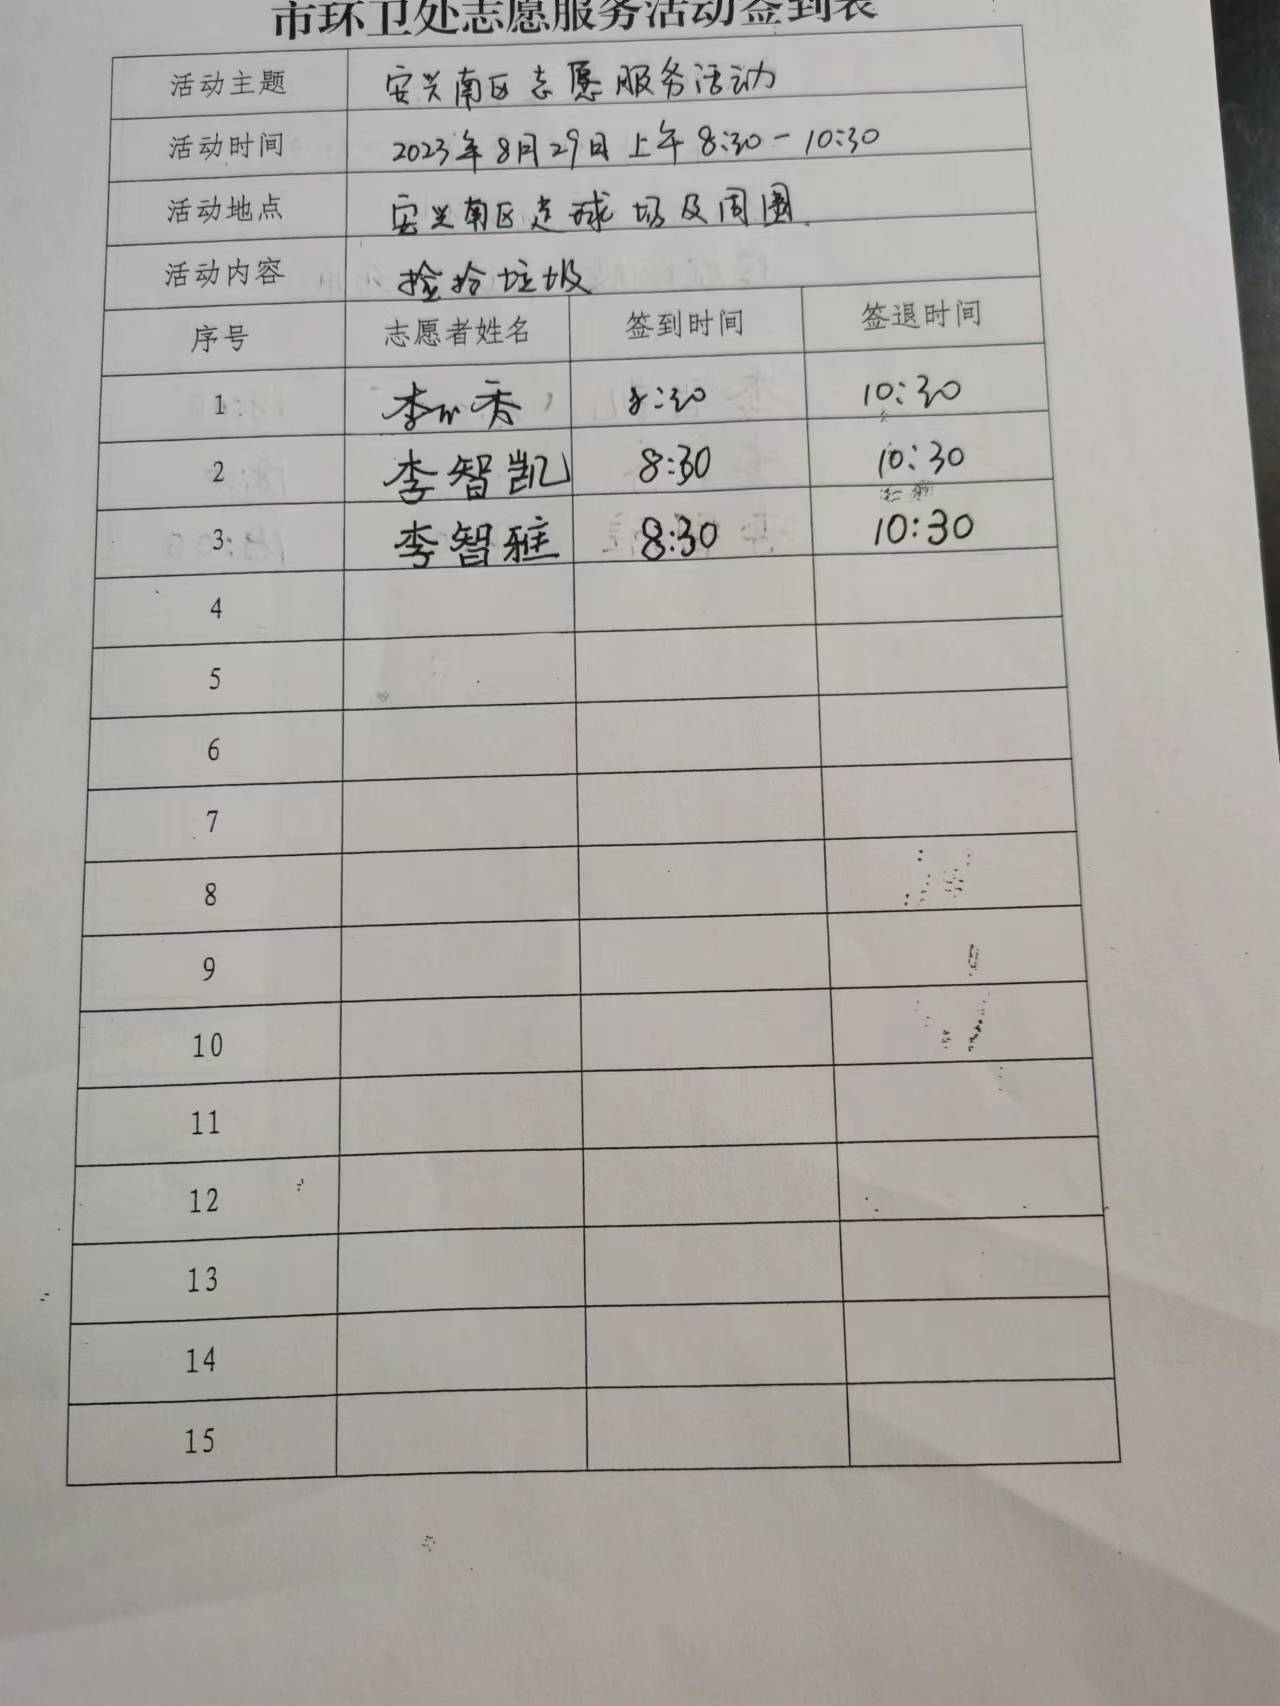 市环卫处志愿服务活动签到表
活动主题 安兴南区志愿服务活动
活动时间 2023年8月29日上午8:30-10:30
活动地点 安兴南区足球场及周围.
活动内容 捡拾垃圾
序号 志愿者姓名 签到时间 签退时间
1 李 秀 8:30 10:30
2 李智凯 8:30 10:30
3 李智雅 8:30 10:30
4
5
6
7
8
9
10
11
12
13
14
15